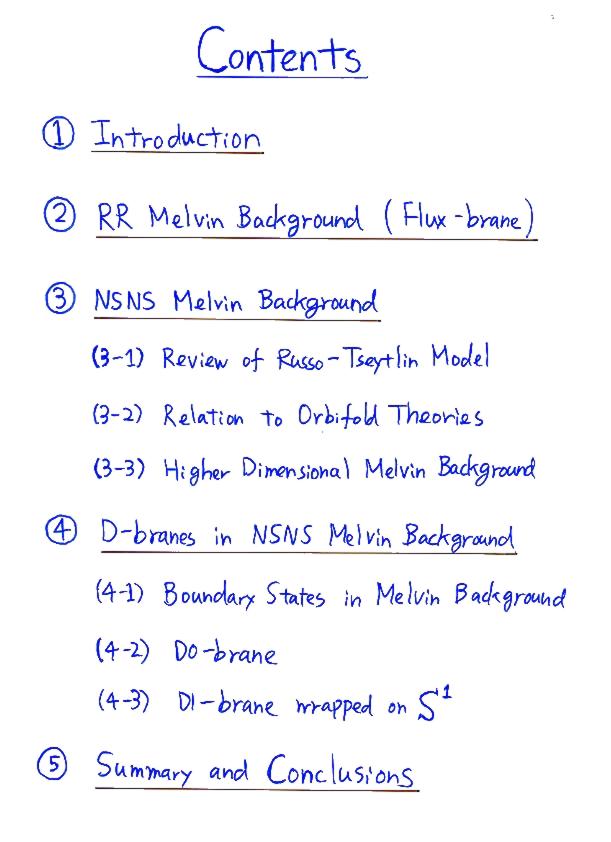 Contents
① Introduction
② RR Melvin Background (Flux-brane)
③ NSNS Melvin Background
(3-1) Review of Russo-Tseytlin Model
(3-2) Relation to Orbifold Theories
(3-3) Higher Dimensional Melvin Background
④ D-branes in NSNS Melvin Background
(4-1) Boundary States in Melvin Background
(4-2) D0-brane
(4-3) D1-brane wrapped on S¹
⑤ Summary and Conclusions